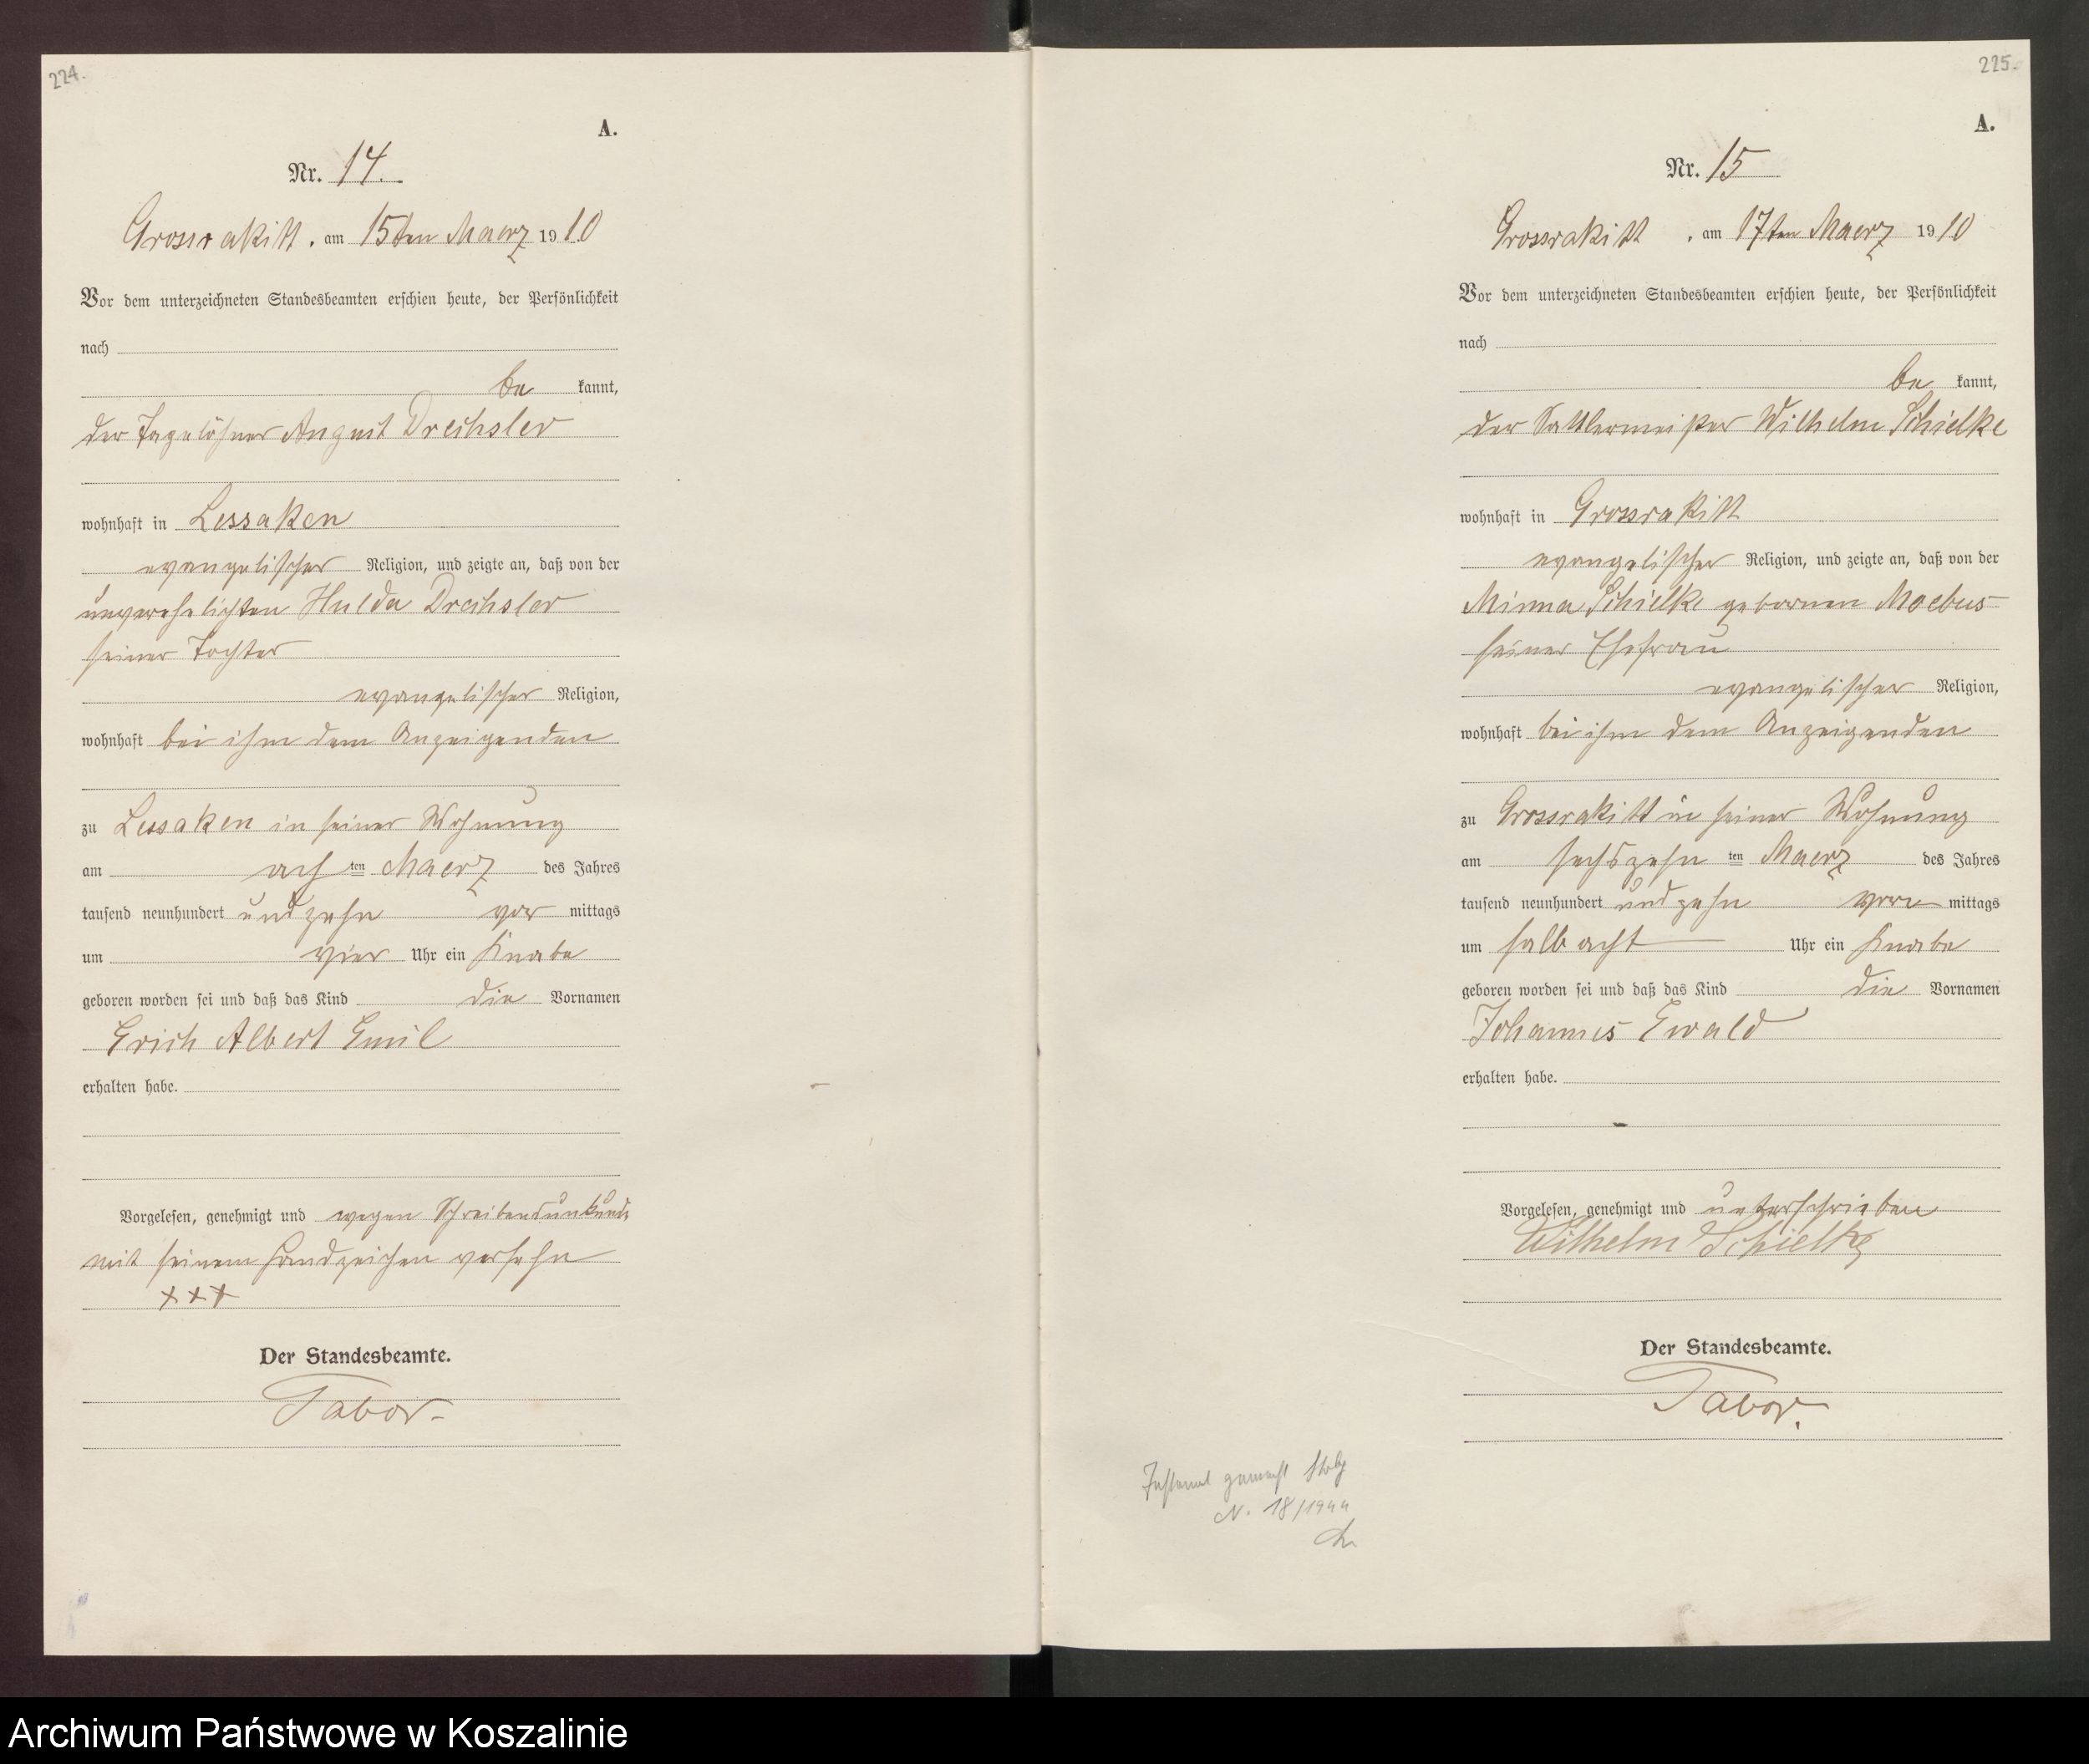 224.
A.
Nr. 14.
Grossrakitt, am 15ten Maerz 1910
Vor dem unterzeichneten Standesbeamten erschien heute, der Persönlichkeit
nach
be kannt,
der Tagelöhner August Drechsler
wohnhaft in Lessaken
evangelischer Religion, und zeigte an, daß von der
unverehelichten Hulda Drechsler
seiner Tochter
evangelischer Religion,
wohnhaft bei ihm dem Anzeigenden
zu Lessaken in seiner Wohnung
am ach ten Maerz des Jahres
tausend neunhundert und zehn vor mittags
um vier Uhr ein Knabe
geboren worden sei und daß das Kind die Vornamen
Erich Albert Emil
erhalten habe.
Vorgelesen, genehmigt und wegen Schreibensunkunde
mit seinem Handzeichen versehn
+++
Der Standesbeamte.
Tabor.
225.
A.
Nr. 15
Grossrakitt, am 17ten Maerz 1910
Vor dem unterzeichneten Standesbeamten erschien heute, der Persönlichkeit
nach
be kannt,
der Sattlermeister Wilhelm Schielke
wohnhaft in Grossrakitt
evangelischer Religion, und zeigte an, daß von der
Minna Schielke gebornen Moebus
seiner Ehefrau
evangelischer Religion,
wohnhaft bei ihm dem Anzeigenden
zu Grossrakitt in seiner Wohnung
am sechszehn ten Maerz des Jahres
tausend neunhundert und zehn vor mittags
um halb acht Uhr ein Knabe
geboren worden sei und daß das Kind die Vornamen
Johannes Ewald
erhalten habe.
Vorgelesen, genehmigt und unterschrieben
Wilhelm Schielke
Der Standesbeamte.
Tabor.
Testament gemacht
N. 18/1944
Archiwum Państwowe w Koszalinie